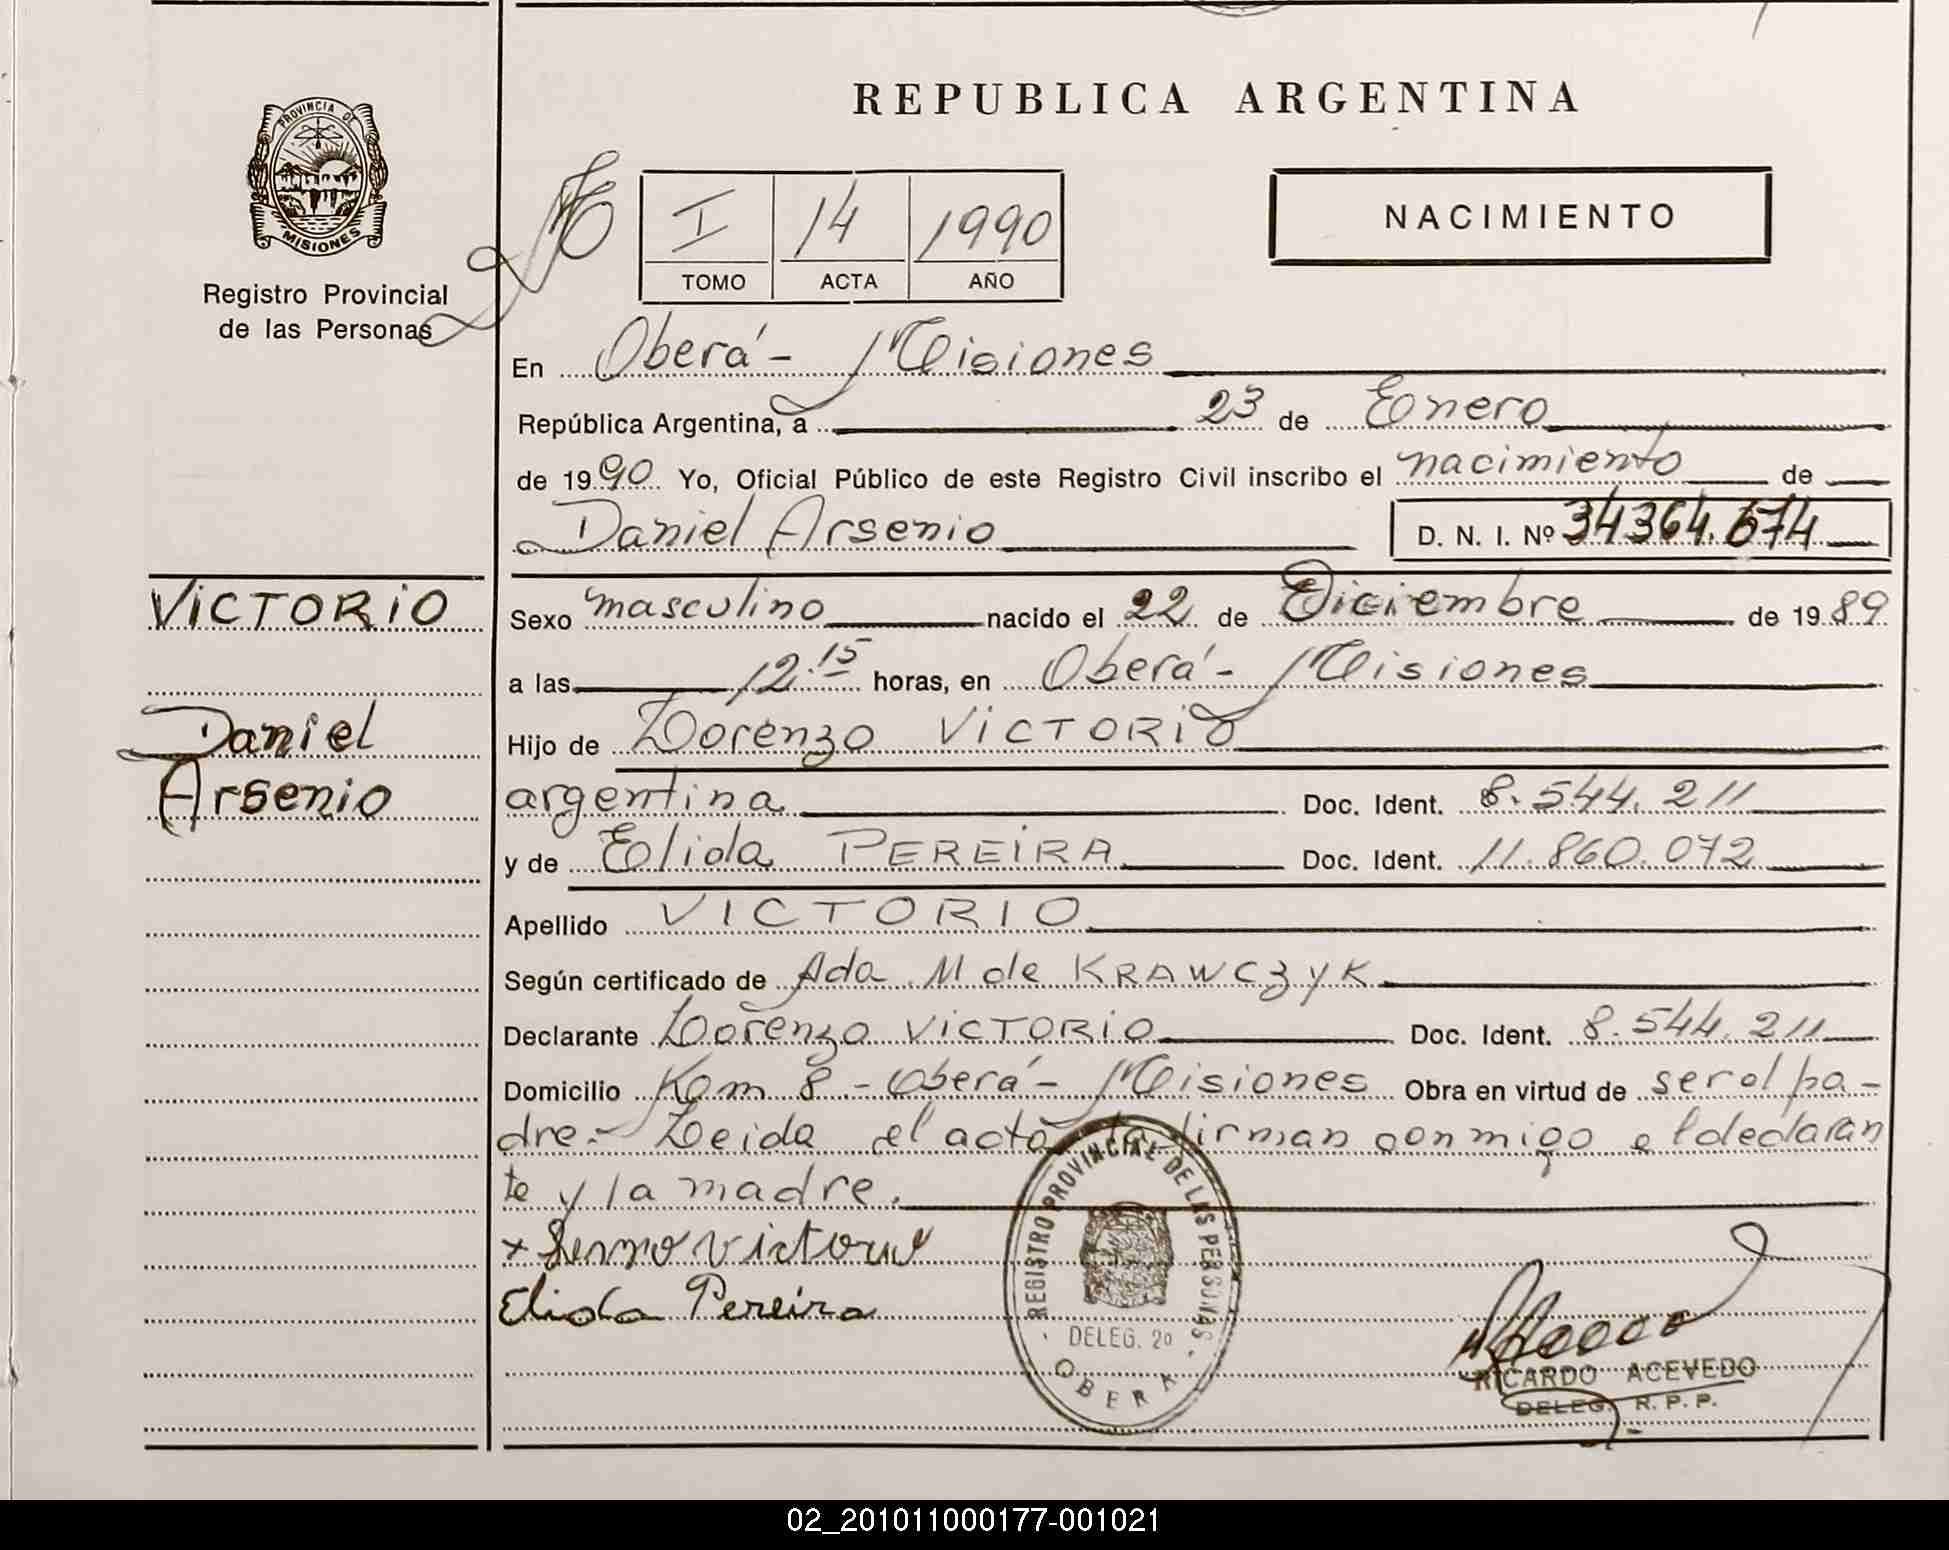 REPUBLICA ARGENTINA
PROVINCIA DE
MISIONES
Registro Provincial
de las Personas
I 14 1990
TOMO ACTA AÑO
NACIMIENTO
En Oberá - Misiones
República Argentina, a 23 de Enero
de 1990 Yo, Oficial Público de este Registro Civil inscribo el nacimiento de
Daniel Arsenio D. N. I. Nº 34364.674
VICTORIO
Daniel
Arsenio
Sexo masculino nacido el 22 de Diciembre de 1989
a las 12.15 horas, en Oberá - Misiones
Hijo de Lorenzo VICTORIO
argentina Doc. Ident. 8.544.211
y de Elida PEREIRA Doc. Ident. 11.860.072
Apellido VICTORIO
Según certificado de Ada M de KRAWCZYK
Declarante Lorenzo VICTORIO Doc. Ident. 8.544.211
Domicilio Kom 8 - Oberá - Misiones Obra en virtud de ser el pa-
dre.- Leida el acta la firman conmigo el declaran
te y la madre.
Elida Pereira
REGISTRO PROVINCIAL DE LAS PERSONAS
DELEG. 2º
OBERA
RICARDO ACEVEDO
DELEG. R. P. P.
02_201011000177-001021